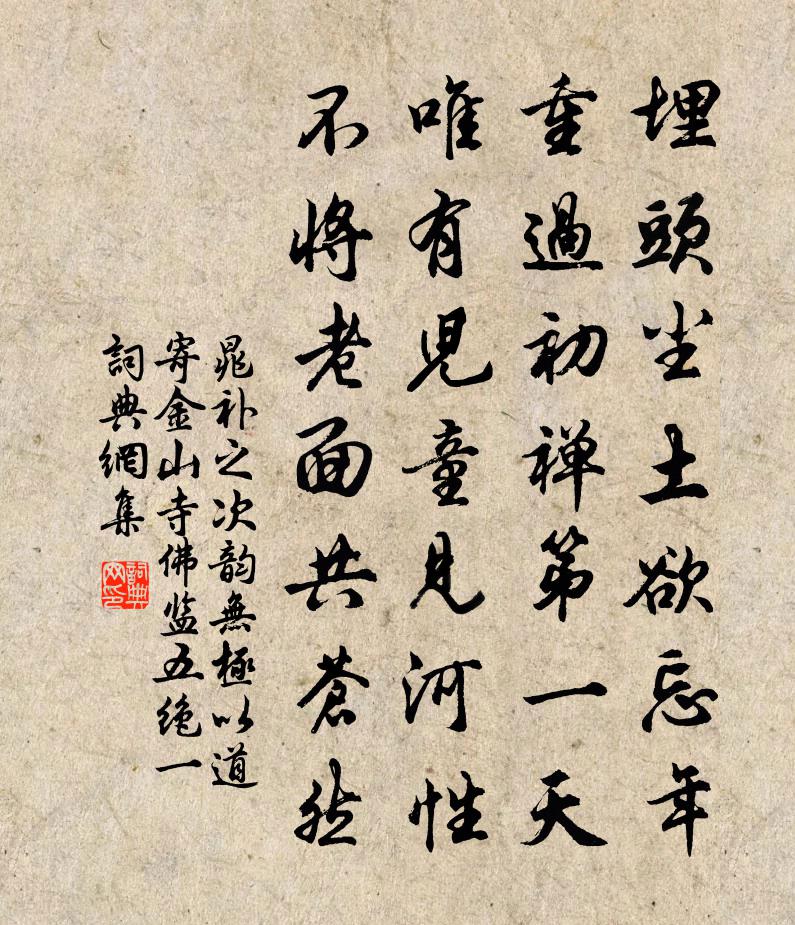 埋頭尘土欲忘年
重過初禅第一天
唯有児童見河性
不将老面共蒼然
晁补之次韵無極以道
寄金山寺佛监五绝一
詞典網集
詞典网印